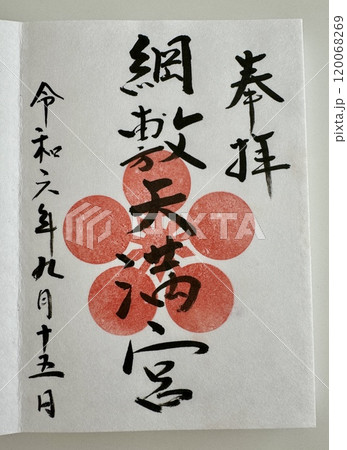 奉拝
綱敷天満宮
令和六年九月十五日
PIXTA
120068269